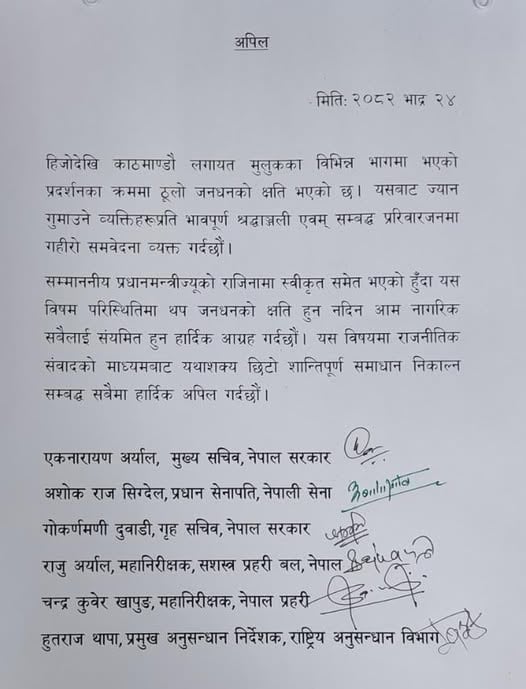 अपिल
मिति: २०८२ भाद्र २४
हिजोदेखि काठमाण्डौ लगायत मुलुकका विभिन्न भागमा भएको
प्रदर्शनका क्रममा ठूलो जनधनको क्षति भएको छ। यसबाट ज्यान
गुमाउने व्यक्तिहरूप्रति भावपूर्ण श्रद्धाञ्जली एवम् सम्बद्ध परिवारजनमा
गहीरो समवेदना व्यक्त गर्दछौं।
सम्माननीय प्रधानमन्त्रीज्यूको राजिनामा स्वीकृत समेत भएको हुँदा यस
विषम परिस्थितिमा थप जनधनको क्षति हुन नदिन आम नागरिक
सबैलाई संयमित हुन हार्दिक आग्रह गर्दछौं। यस विषयमा राजनीतिक
संवादको माध्यमबाट यथाशक्य छिटो शान्तिपूर्ण समाधान निकाल्न
सम्बद्ध सबैमा हार्दिक अपिल गर्दछौं।
एकनारायण अर्याल, मुख्य सचिव, नेपाल सरकार
अशोक राज सिग्देल, प्रधान सेनापति, नेपाली सेना
गोकर्णमणी दुवाडी, गृह सचिव, नेपाल सरकार
राजु अर्याल, महानिरीक्षक, सशस्त्र प्रहरी बल, नेपाल
चन्द्र कुवेर खापुङ, महानिरीक्षक, नेपाल प्रहरी
हुतराज थापा, प्रमुख अनुसन्धान निर्देशक, राष्ट्रिय अनुसन्धान विभाग